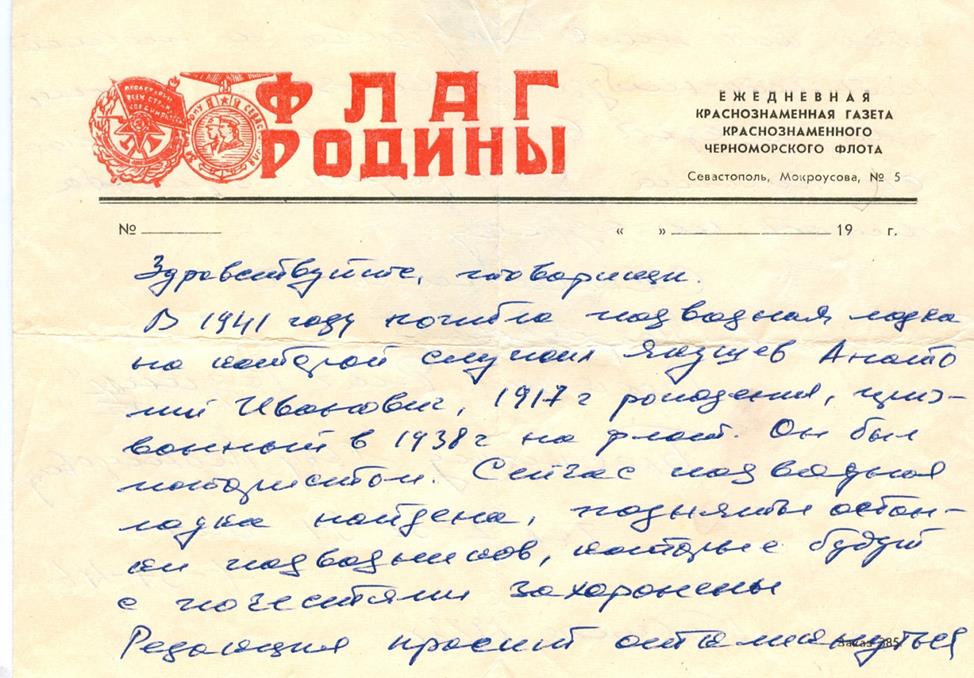 ФЛАГ
РОДИНЫ
ЕЖЕДНЕВНАЯ
КРАСНОЗНАМЕННАЯ ГАЗЕТА
КРАСНОЗНАМЕННОГО
ЧЕРНОМОРСКОГО ФЛОТА
Севастополь, Мокроусова, № 5
№ « » 19 г.
Здравствуйте, товарищи.
В 1941 году погибла подводная лодка
на которой служил Анато
лий Иванович, 1917 г рождения, приз-
ванный в 1938 г на флот. Он был
мотористом. Сейчас подводная
лодка найдена, подняты остан-
ки подводников, которые будут
с почестями захоронены
Редакция просит откликнуться